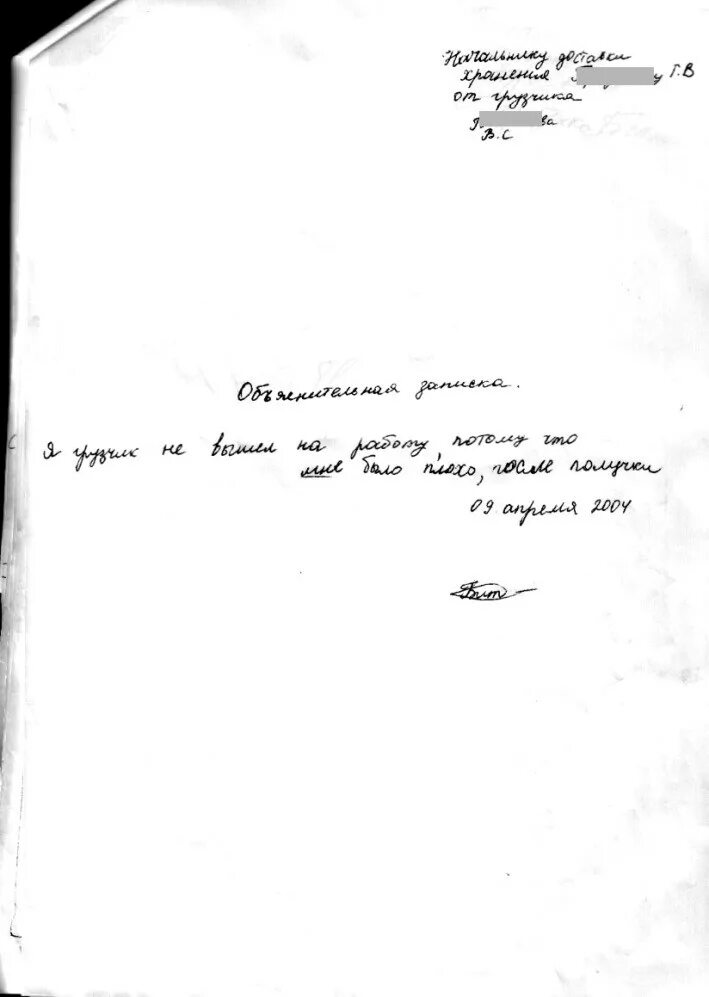 Начальнику доставки
хранения П у Г.В
от грузчика
ва
В.С
Объяснительная записка.
Я грузчик не вышел на работу, потому что
мне было плохо, после получки
09 апреля 2004